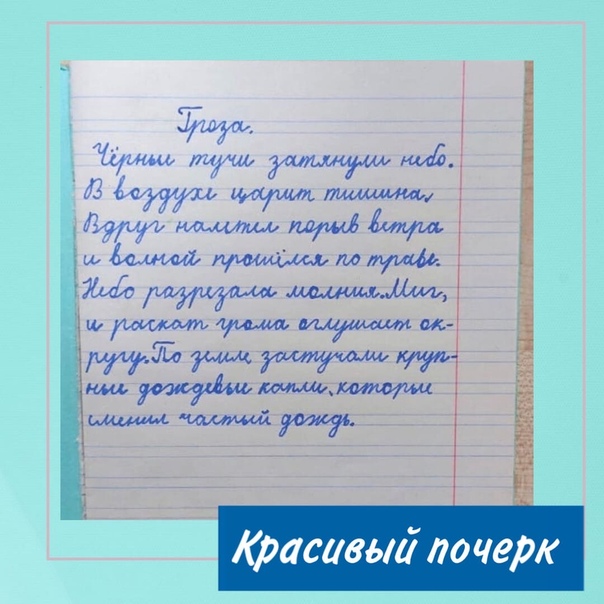 Гроза.
Чёрные тучи затянули небо.
В воздухе царит тишина,
Вдруг налетел порыв ветра
и волной прошёлся по траве.
Небо разрезала молния. Миг,
и раскат грома оглушает ок-
ругу. По земле застучали круп-
ные дождевые капли, которые
сменил частый дождь.
Красивый почерк